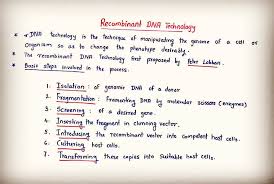 Recombinant DNA Technology
* rDNA technology is the technique of manipulating the genome of a cell or
organism so as to change the phenotype desirably.
* The recombinant DNA Technology first proposed by Peter Lobban.
* Basic steps involved in the process:
1. Isolation: of genomic DNA of a donor.
2. Fragmentation: Fragmenting DNA by molecular scissors (enzymes)
3. Screening: of a desired gene.
4. Inserting the fragment in clonning vector.
5. Introducing the recombinant vector into competent host cells.
6. Culturing host cells.
7. Transforming these copies into Suitable host cells.